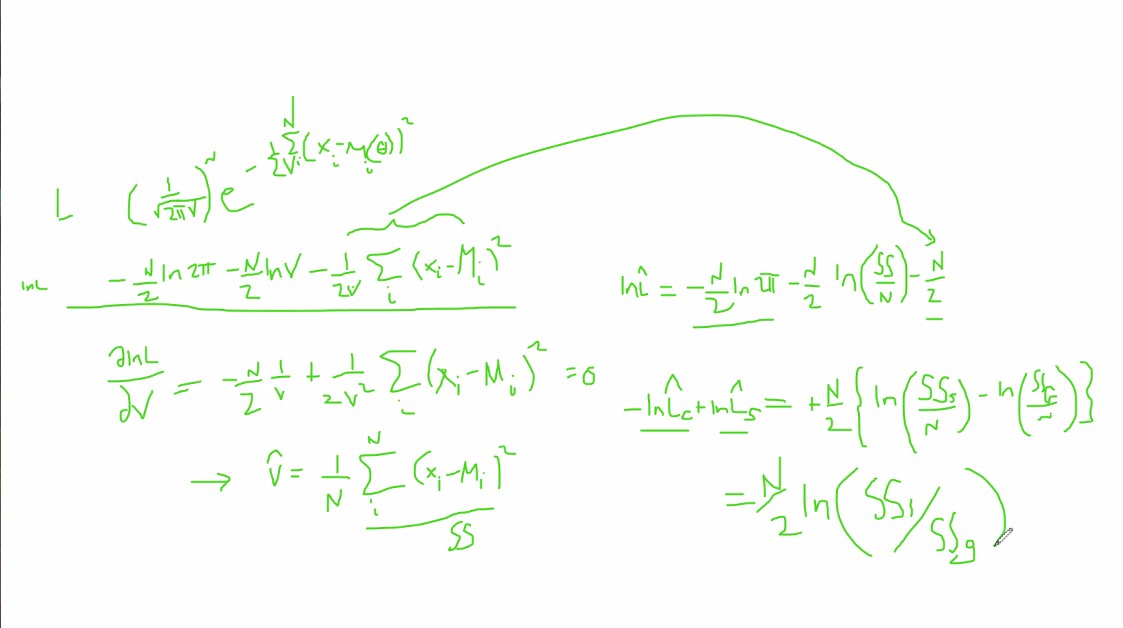 L (1/√(2πV))^N e^(-1/(2V) Σ_i^N (x_i - M_i(θ))^2)
lnL -N/2 ln 2π - N/2 lnV - 1/(2V) Σ_i (x_i - M_i)^2
∂lnL/∂V = -N/2 1/V + 1/(2V^2) Σ_i (x_i - M_i)^2 = 0
→ V̂ = 1/N Σ_i^N (x_i - M_i)^2
SS
lnL̂ = -N/2 ln π - N/2 ln(SS/N) - N/2
-lnL̂_c + lnL̂_s = +N/2 {ln(SS_s/N) - ln(SS_c/N)}
= N/2 ln(SS_1/SS_g)